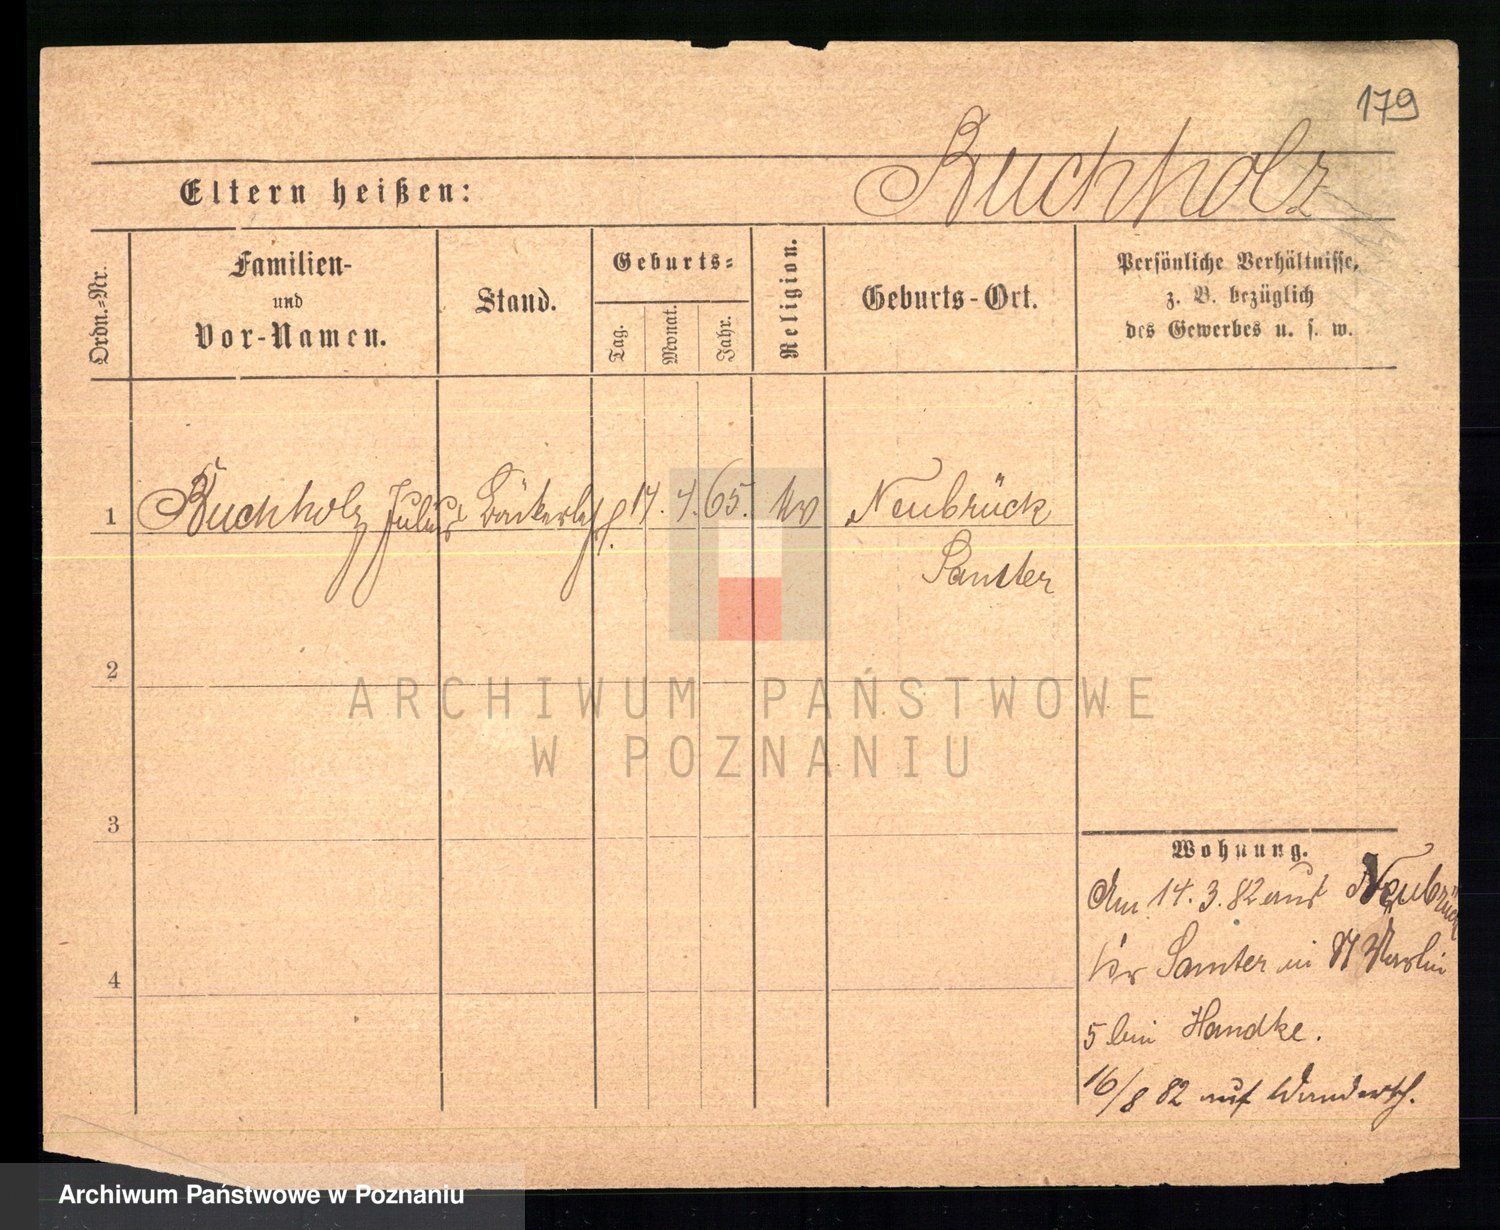 179
Buchholz
Eltern heißen:
Ordn.-Nr.
Familien-
und
Vor-Namen.
Stand.
Geburts-
Tag.
Monat.
Jahr.
Religion.
Geburts-Ort.
Persönliche Verhältnisse,
z. B. bezüglich
des Gewerbes u. s. w.
1 Buchholz Julius Bäckerlehrl. 17. 4. 65. Neubrück
Samter
2
ARCHIWUM PAŃSTWOWE
W POZNANIU
3
4
Wohnung.
Am 14. 3. 82 aus Neubrück
Kr Samter in St Martin
5 bei Handke.
16/8 82 auf Wandersch.
Archiwum Państwowe w Poznaniu